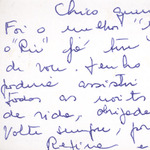 Chico quer
Foi o melhor "
o "Rio" fá
de vou. Tenho
poderia assistir
todos as noites
de vida, obrigada
Volte sempre, por
Regina e